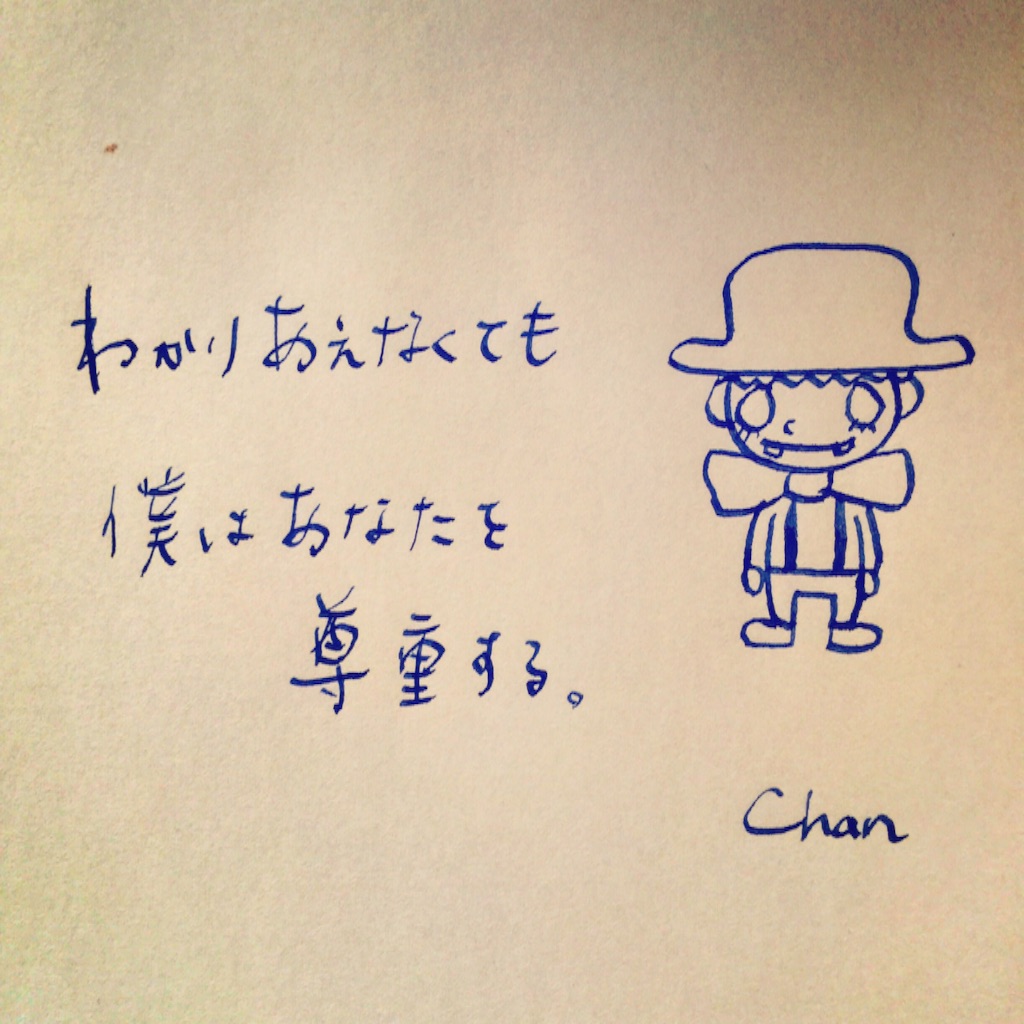 わかりあえなくても
僕はあなたを
尊重する。
Chan